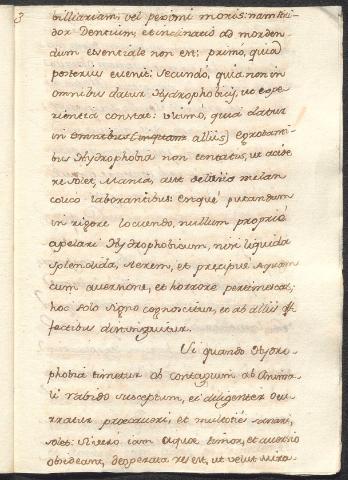 3
billiariam, vel pessimi moris: nam stri-
dor Dentium, et inclinatio ad morden-
dum essenciale non est: primó, quia
posterius evenit: secundo, quia non in
omnibus datur Hydrophobijs, ut expe-
rientia constat: ultimo, quia datur
in omnibus (inquam alliis) Egrotanti-
bus Hydrophobia non tentatis, ut accide-
re solet, Mania, aut delirio melan-
colico laborantibus: estque putandum
in rigore loquendo, nullum propriè
apelari Hydrophobicum, nisi liquida
splendida, Aerem, et precipuè Aquam
cum aversione, et horrore pertimescat;
hoc solo signo cognoscitur, et ab alliis af-
fectibus distinguitur.
Si quando Hydro-
phobia timetur ob contagium ab Anima-
li rabido susceptum, ei diligenter ocu-
rratur precaveri, et multoties sanari,
solet: si vero iam aquæ timor, et aversio
obsideant, desperata res est, ut velut mira-